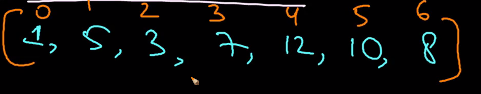 0 1 2 3 4 5 6
[1, 5, 3, 7, 12, 10, 8]